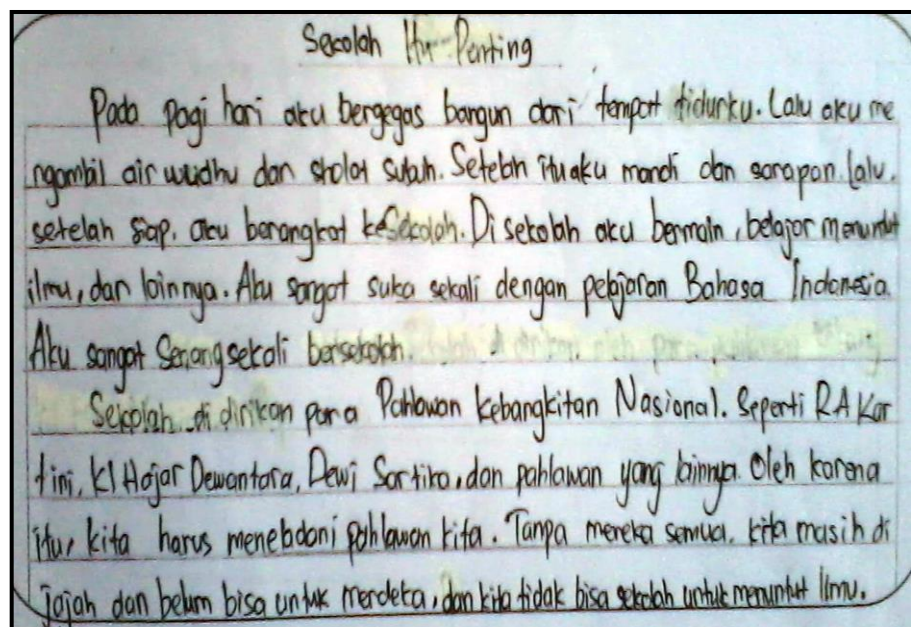 Sekolah Itu Penting
Pada pagi hari aku bergegas bangun dari tempat tidurku. Lalu aku me
ngambil air wudhu dan sholat subuh. Setelah itu aku mandi dan sarapan. Lalu,
setelah siap. aku berangkat keSekolah. Di sekolah aku bermain, belajar menuntut
ilmu, dan lainnya. Aku sangat suka sekali dengan pelajaran Bahasa Indonesia.
Aku sangat Senang sekali bersekolah.
Sekolah di dirikan para Pahlawan Kebangkitan Nasional. Seperti RA Kar
tini, KI Hajar Dewantara, Dewi Sartika, dan pahlawan yang lainnya. Oleh karena
itu, kita harus meneladani pahlawan kita. Tanpa mereka semua, kita masih di
jajah dan belum bisa untuk merdeka, dan kita tidak bisa sekolah untuk menuntut ilmu.